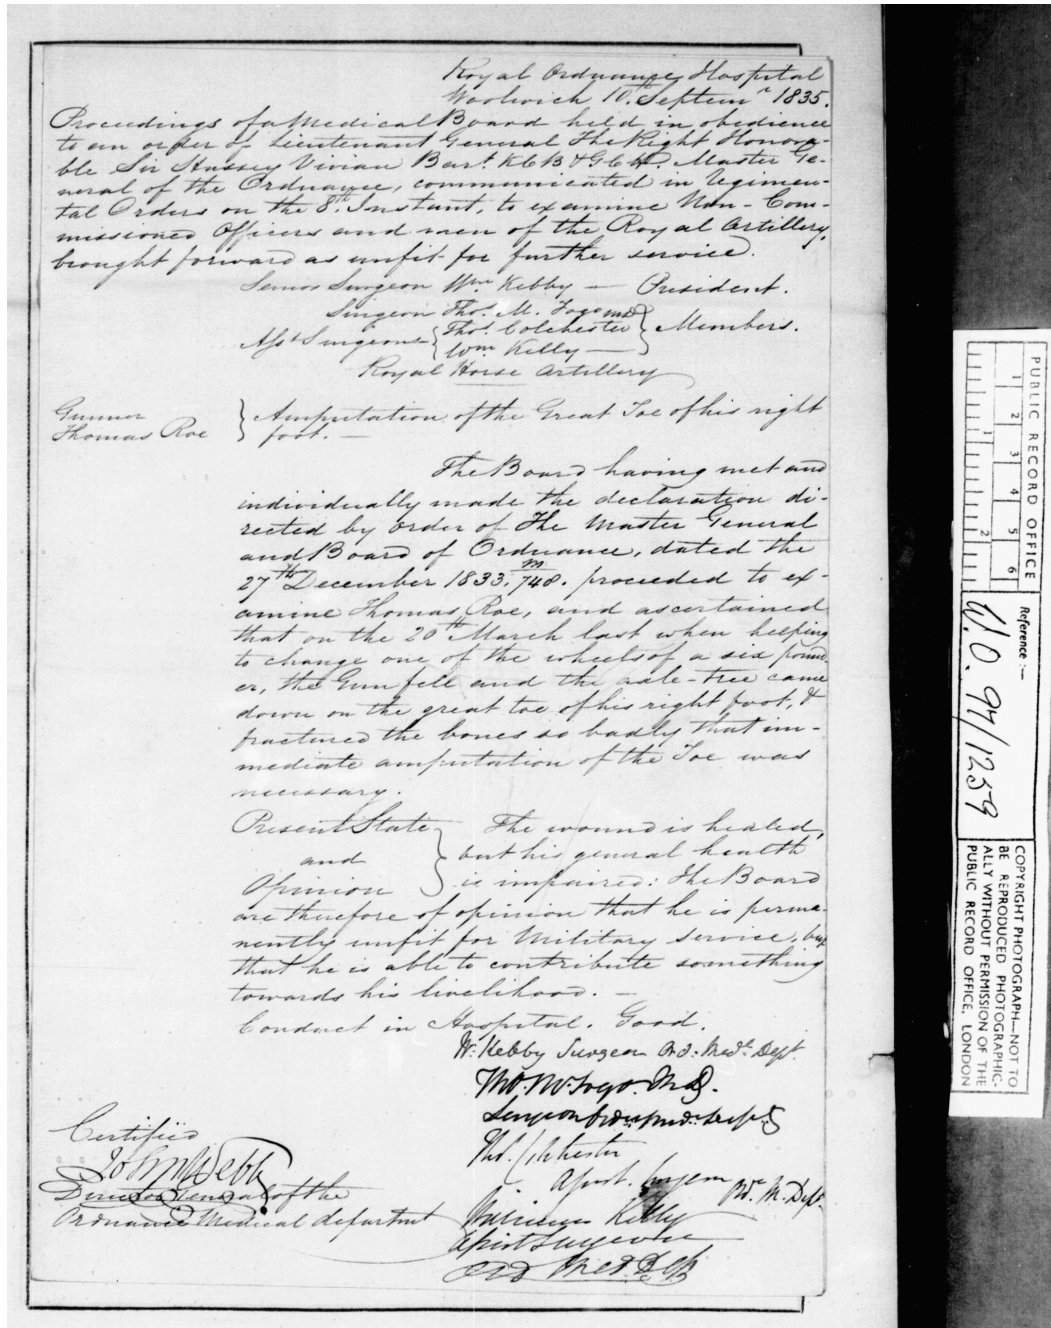 Royal Ordnance Hospital
Woolwich 10th Septemr 1835.
Proceedings of a Medical Board held in obedience
to an order of Lieutenant General The Right Honora-
ble Sir Hussey Vivian Bart. KCB & GCH. Master Ge-
neral of the Ordnance, communicated in Regimen-
tal Orders on the 8th Instant, to examine Non-Com-
missioned Officers and men of the Royal Artillery,
brought forward as unfit for further service.
Senior Surgeon Wm Kebby — President.
Surgeon Thos. M. Fogo MD
Asst Surgeons Thos. Colchester Members.
Wm Kelly —
Royal Horse Artillery
Gunner
Thomas Roe
Amputation of the Great Toe of his right
foot. —
The Board having met and
individually made the declaration di-
rected by order of The Master General
and Board of Ordnance, dated the
27th December 1833. M/748. proceeded to ex-
amine Thomas Roe, and ascertained
that on the 20th March last when helping
to change one of the wheels of a six pound-
er, the Gun fell and the axle-tree came
down on the great toe of his right foot, &
fractured the bones so badly that im-
mediate amputation of the Toe was
necessary.
Present State
and
Opinion
The wound is healed,
but his general health
is impaired: The Board
are therefore of opinion that he is perma-
nently unfit for Military service, but
that he is able to contribute something
towards his livelihood. —
Conduct in Hospital. Good.
Wm Kebby Surgeon Ord: Medl Dept.
Tho. M. Fogo. MD.
Surgeon Ord: Med: Dept.
Tho. Colchester
Assist. Surgeon Ord. M. Dept.
William Kelly
Assist Surgeon
Ord Med. Dept
Certified
John Webb
Director General of the
Ordnance Medical department
PUBLIC RECORD OFFICE
1 2 3 4 5 6
1 2
Reference :-
W.O. 97/1259
COPYRIGHT PHOTOGRAPH—NOT TO
BE REPRODUCED PHOTOGRAPHIC-
ALLY WITHOUT PERMISSION OF THE
PUBLIC RECORD OFFICE, LONDON